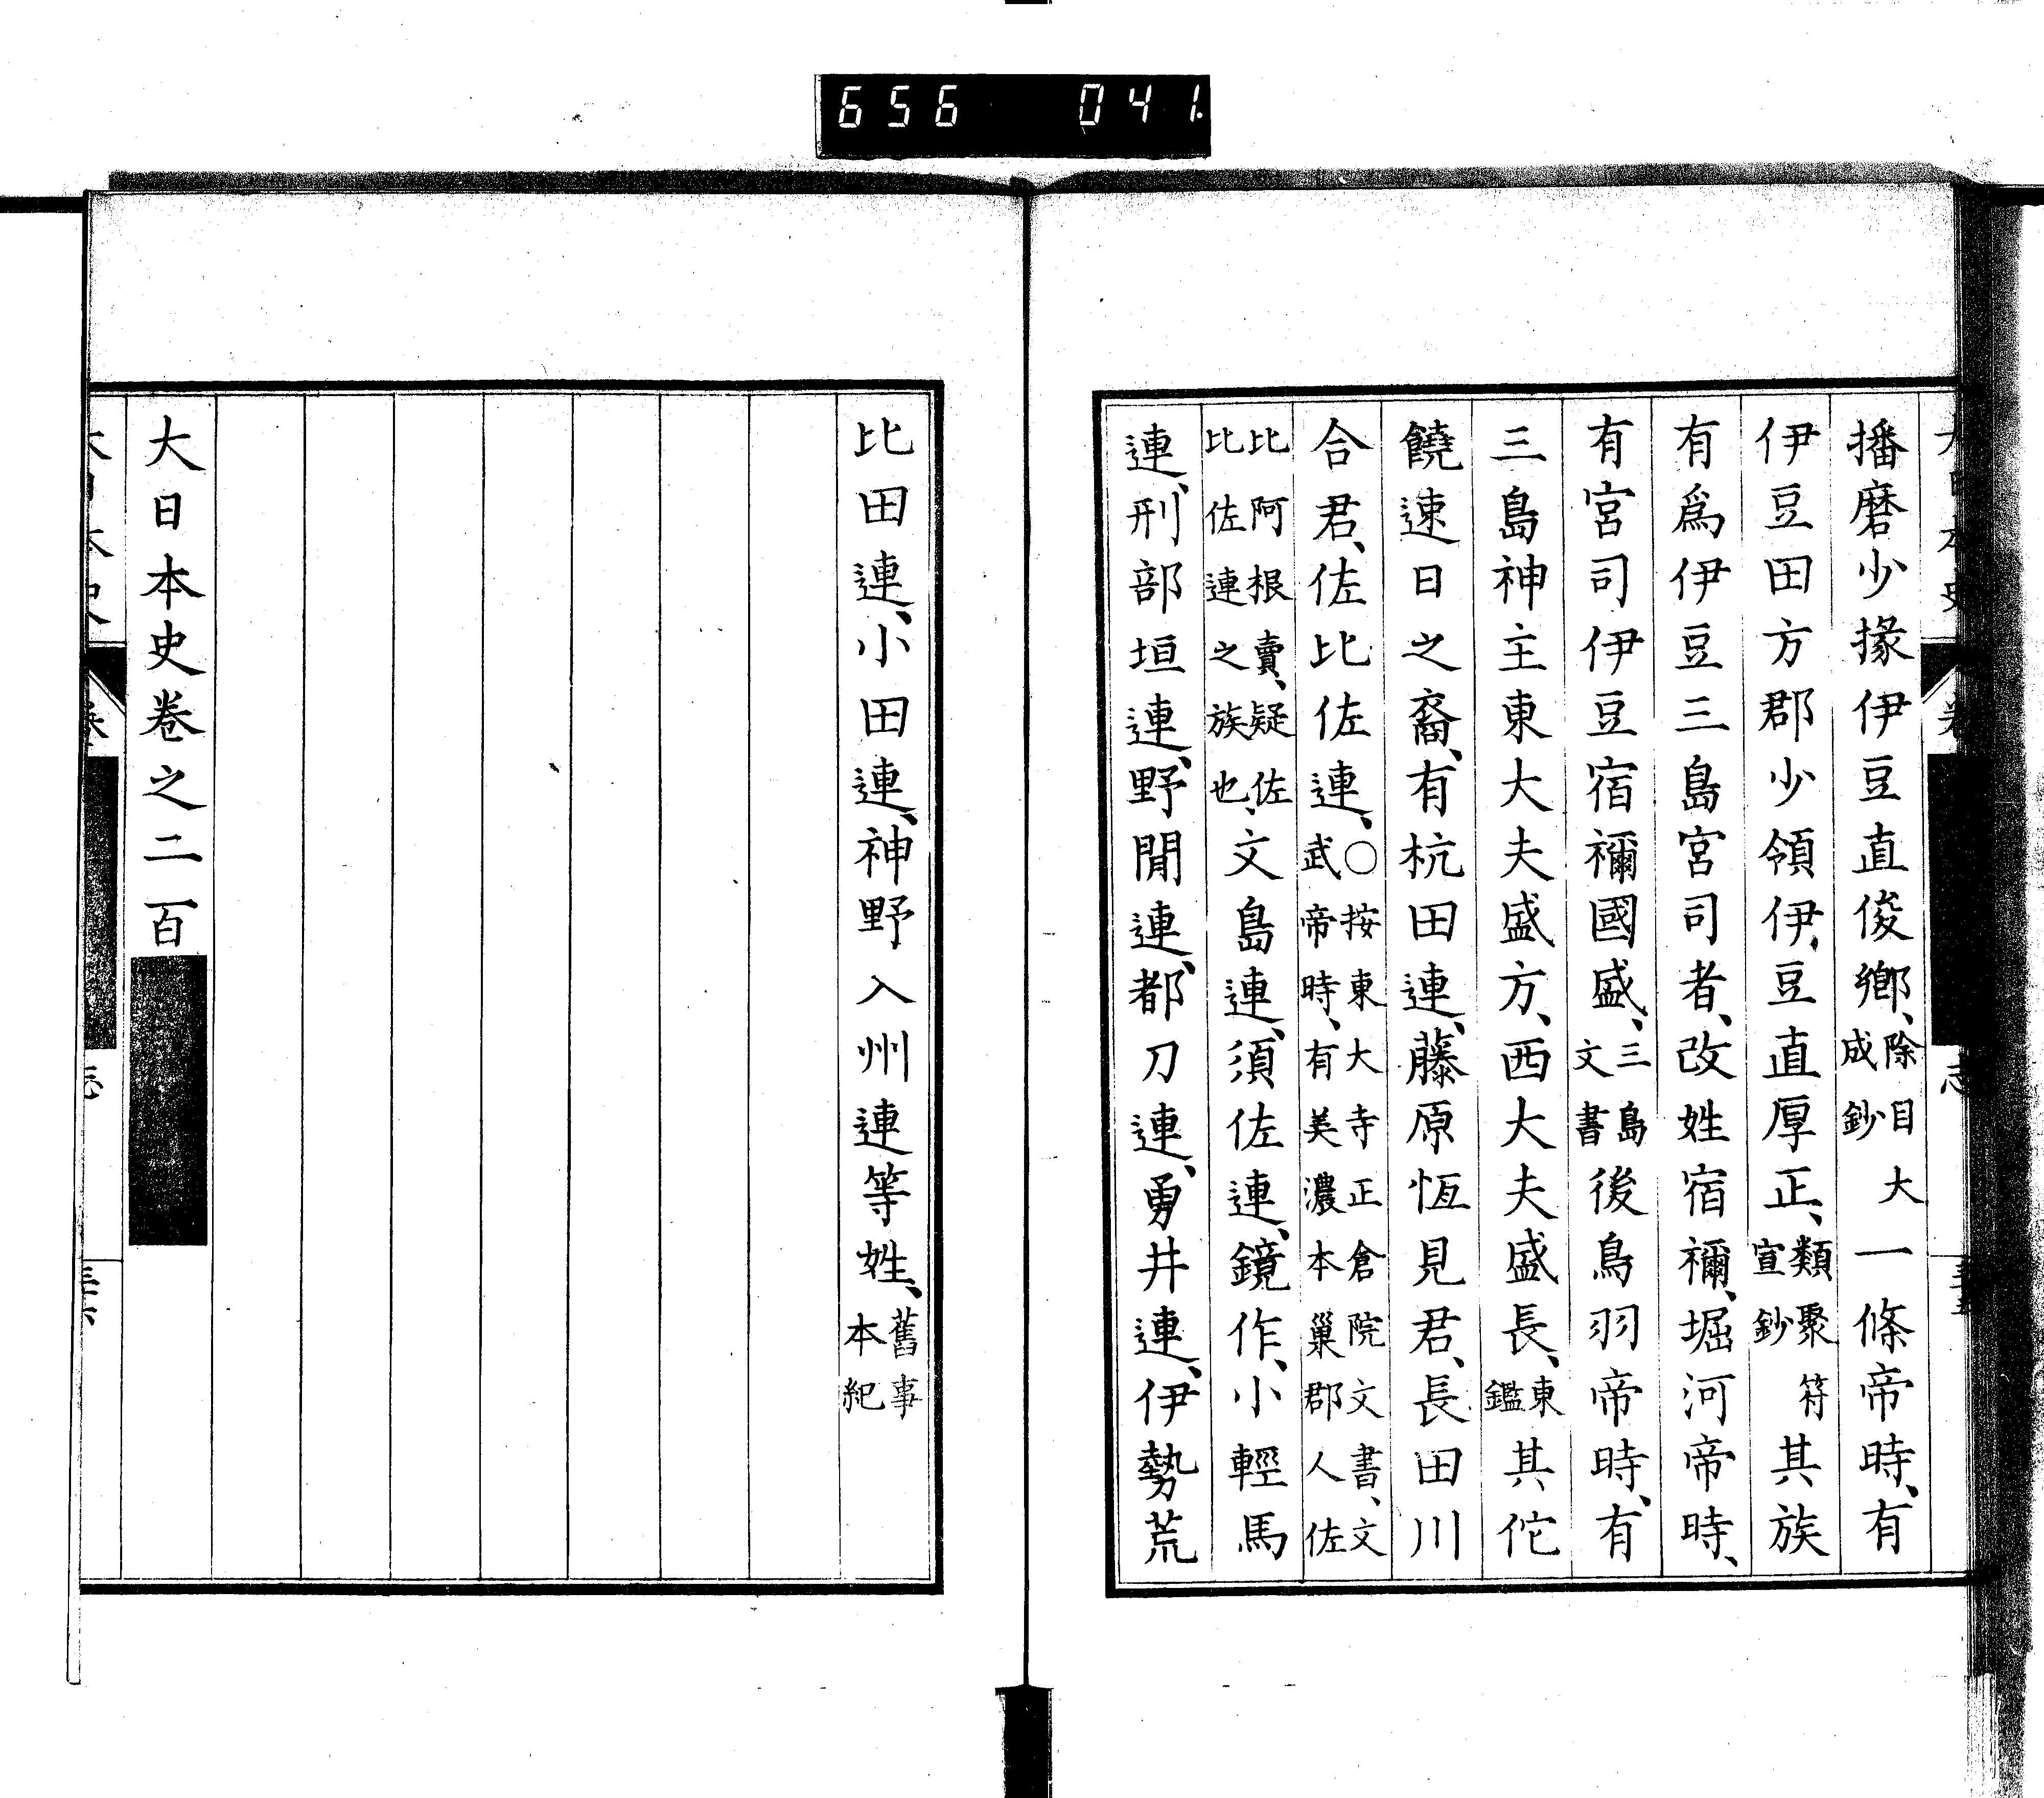 656 041.
播磨少掾伊豆直俊鄕、除目大成鈔一條帝時、有
伊豆田方郡少領伊豆直厚正、類聚符宣鈔其族
有爲伊豆三島宮司者、改姓宿禰、堀河帝時、
有宮司伊豆宿禰國盛、三島文書後鳥羽帝時、有
三島神主東大夫盛方、西大夫盛長、東鑑其佗
饒速日之裔、有杭田連、藤原恆見君、長田川
合君、佐比佐連、○按東大寺正倉院文書、文武帝時、有美濃本巢郡人佐
比阿根賣、疑佐比佐連之族也、文島連、須佐連、鏡作、小輕馬
連、刑部垣連、野閒連、都刀連、勇井連、伊勢荒
比田連、小田連、神野入州連等姓、舊事本紀
大日本史卷之二百